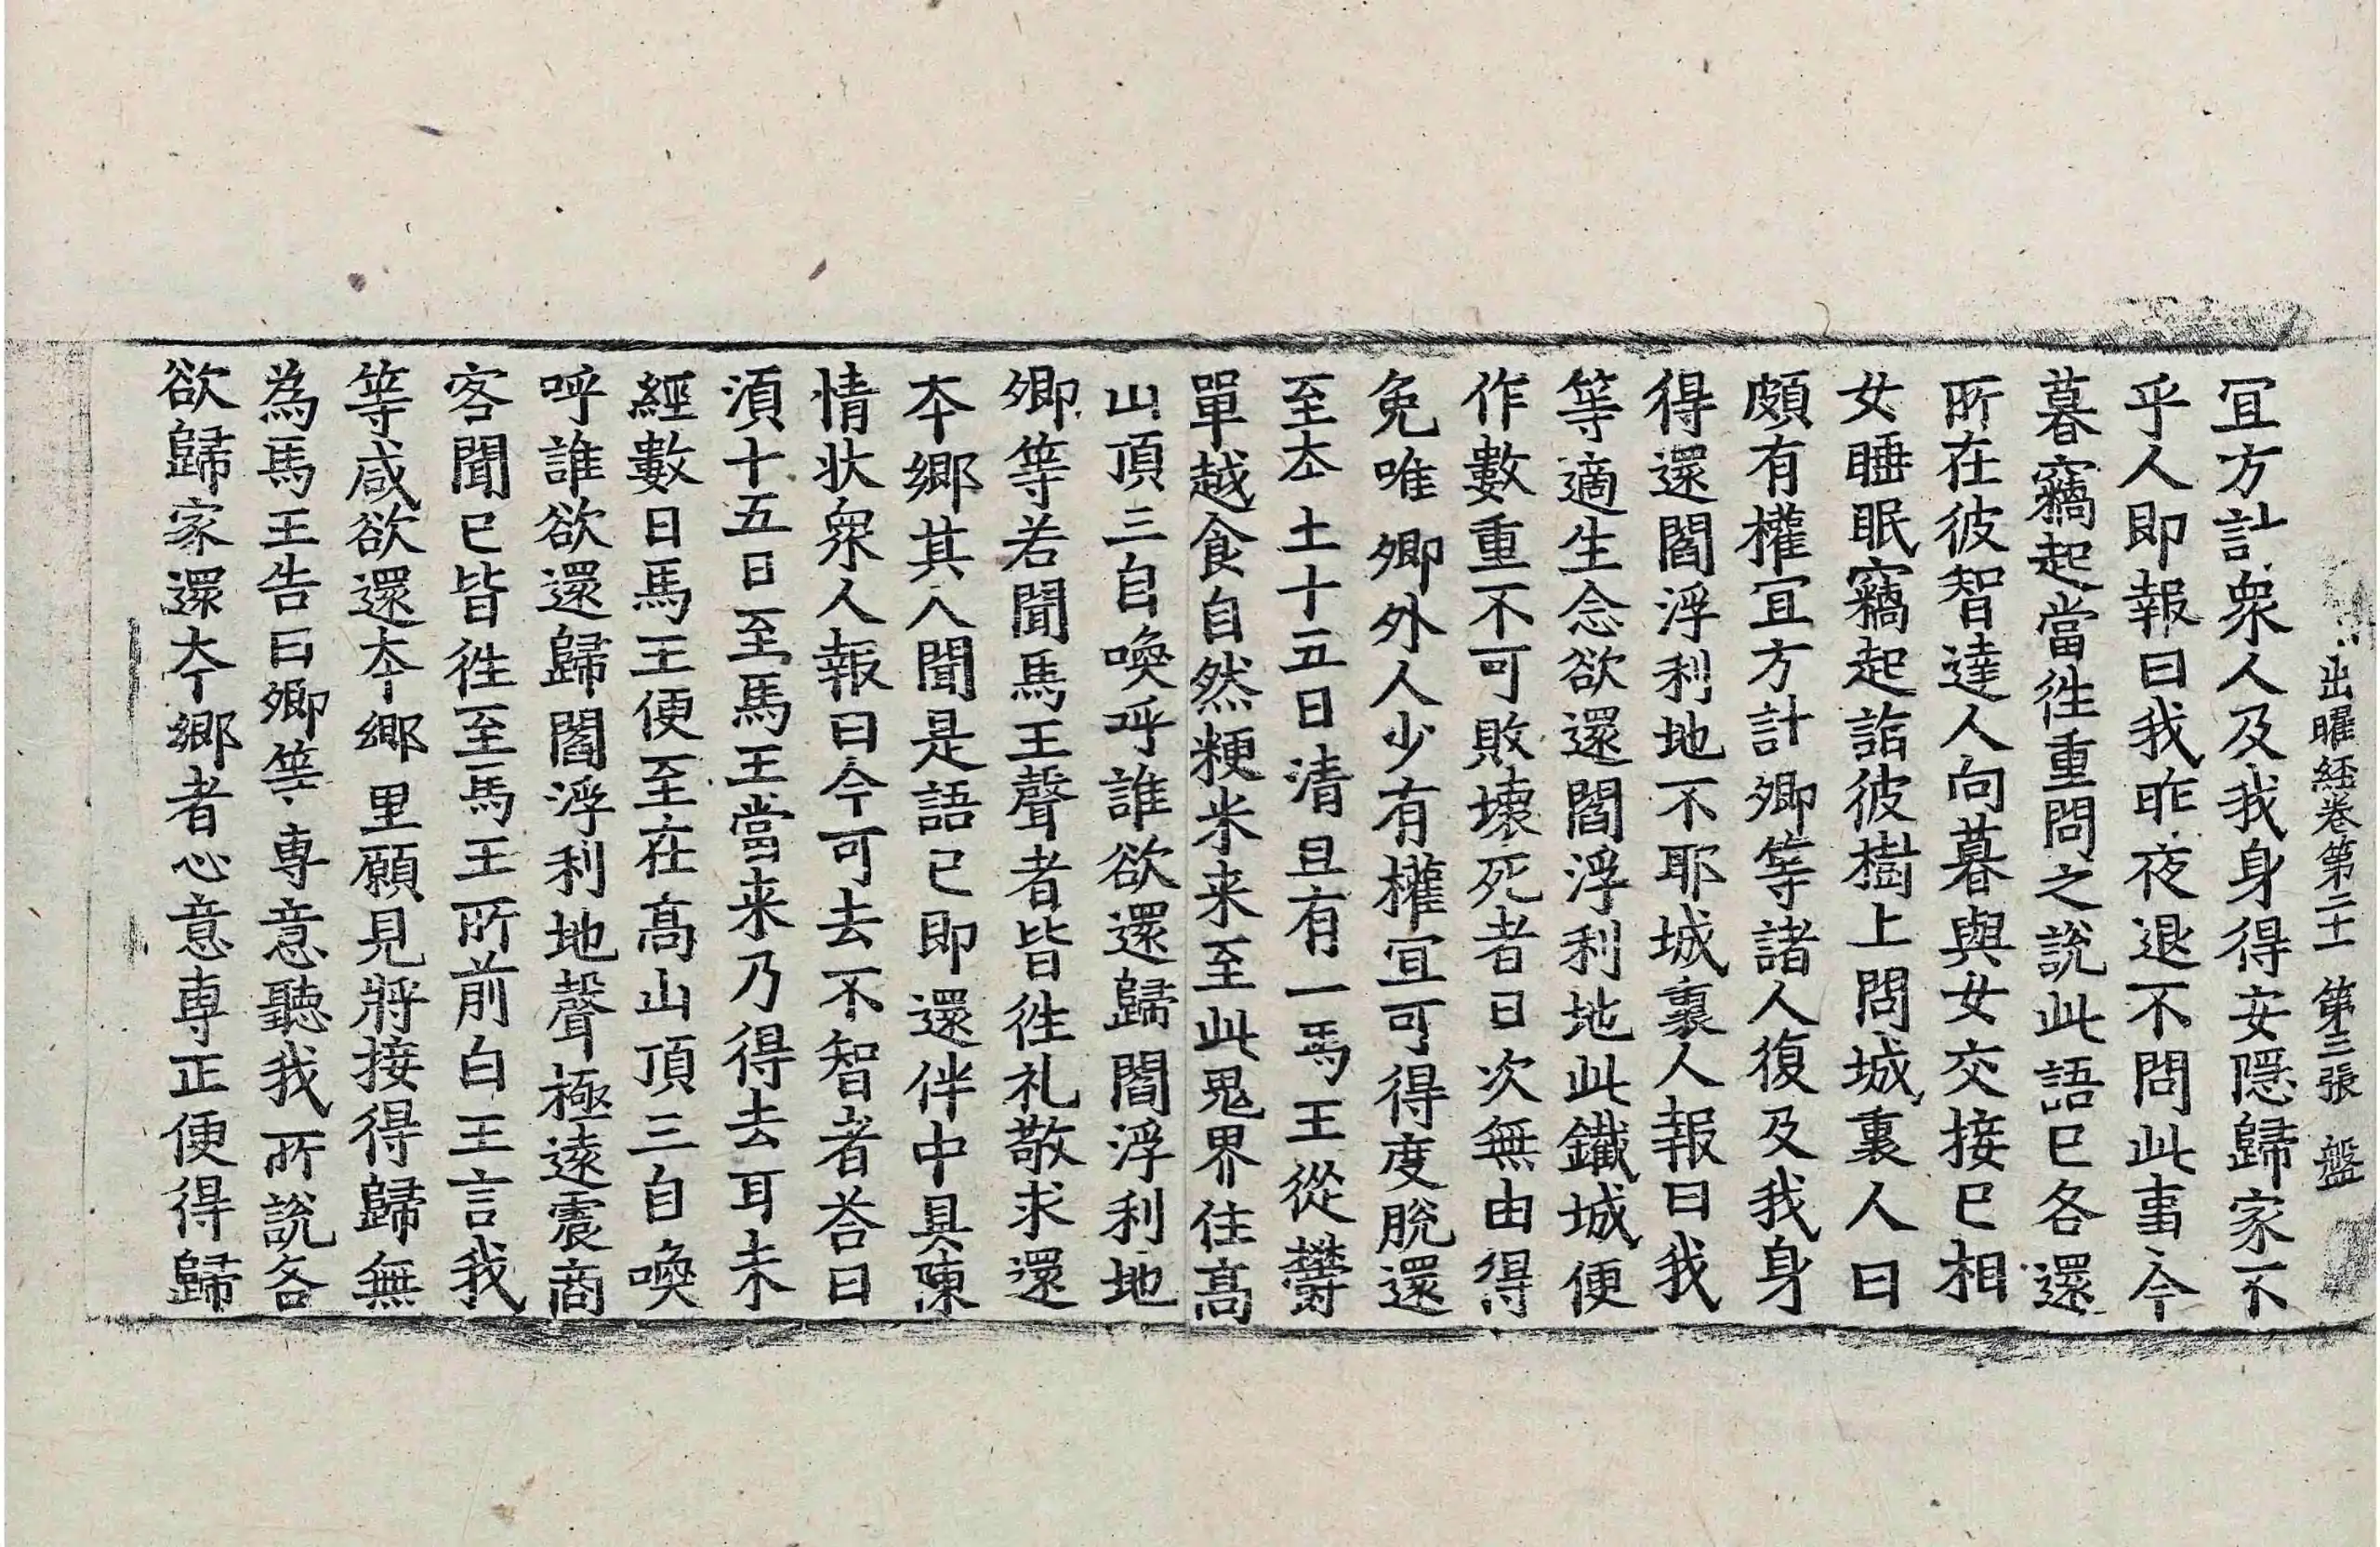 出曜経卷第二十一 第三張 盤
冝方計衆人及我身得安隱歸家不
乎人即報曰我昨夜退不問此事今
暮竊起當往重問之說此語已各還
所在彼智達人向暮與女交接已相
女睡眠竊起詣彼樹上問城裏人曰
頗有權冝方計卿等諸人復及我身
得還閻浮利地不耶城裏人報曰我
等適生念欲還閻浮利地此鐵城便
作數重不可敗壞死者日次無由得
免唯卿外人少有權冝可得度脫還
至夲土十五日清旦有一馬王從欝
單越食自然粳米来至此鬼界住高
山頂三自喚呼誰欲還歸閻浮利地
卿等若聞馬王聲者皆往礼敬求還
夲鄉其人聞是語已即還伴中具陳
情狀衆人報曰今可去不智者荅曰
湏十五日至馬王當来乃得去耳未
經數日馬王便至在高山頂三自喚
呼誰欲還歸閻浮利地聲極遠震商
客聞已皆往至馬王所前白王言我
等咸欲還夲鄉里願見將接得歸無
為馬王告曰卿等專意聽我所說各
欲歸家還夲鄉者心意專正便得歸